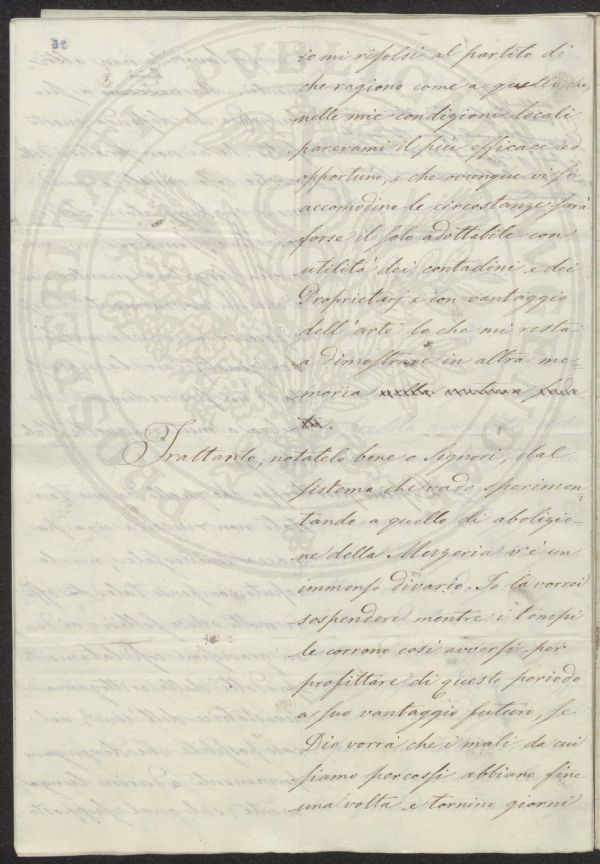 io mi risolsi al partito di
che ragiono come a quelli che
nelle mie condizioni locali
parevami il più efficace ed
opportuno, e che ovunque vi si
accomodino le circostanze sarà
forse il solo adottabile con
utilità dei contadini e dei
Proprietarj e con vantaggio
dell'arte lo che mi resta
a dimostrare in altra me=
moria
Frattanto, notatelo bene o Signori, dal
sistema che vado sperimen
tando a quello di abolizio=
ne della Mezzeria v'è un
immenso divario. Io la vorrei
sospendere mentre i tempi
le corrono così avversi per
profittare di questo periodo
a suo vantaggio futuro, se
Dio vorrà che i mali da cui
siamo percossi abbiano fine
una volta e tornino giorni
PROSPERITATI PUBLICAE